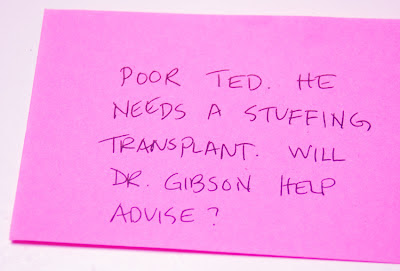 POOR TED. HE
NEEDS A STUFFING
TRANSPLANT. WILL
DR. GIBSON HELP
ADVISE?